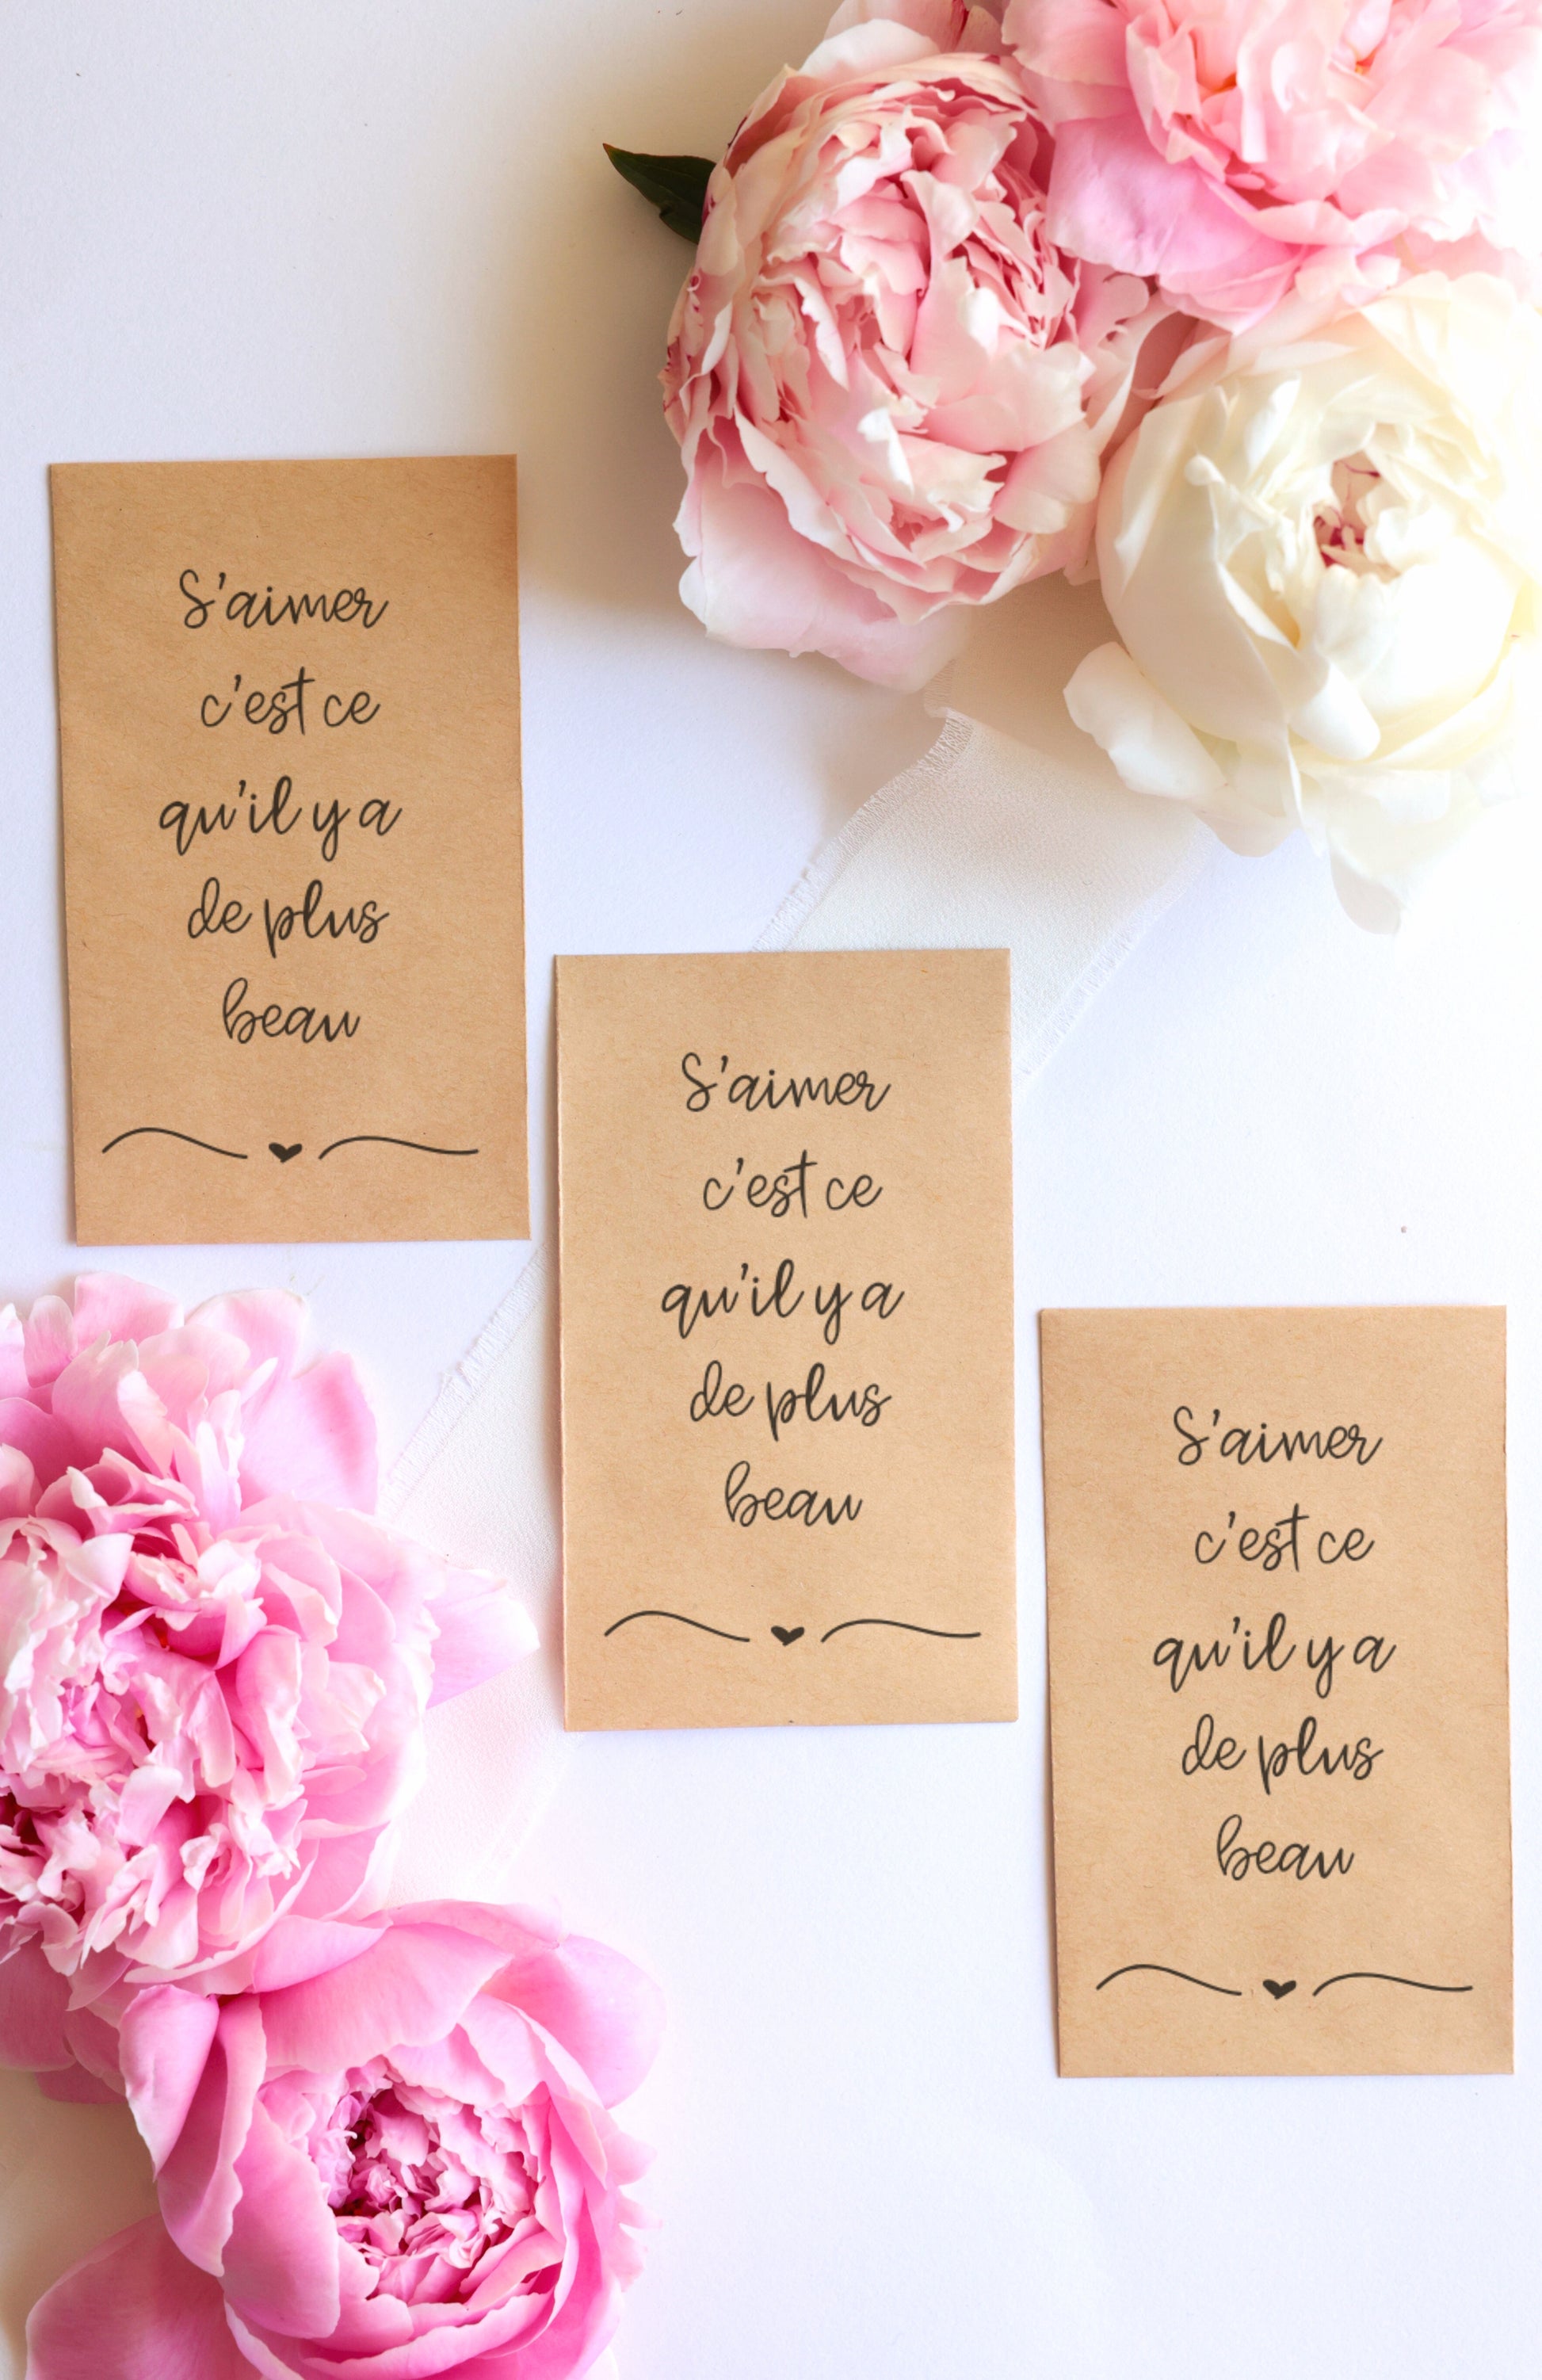 S'aimer
c'est ce
qu'il y a
de plus
beau
S'aimer
c'est ce
qu'il y a
de plus
beau
S'aimer
c'est ce
qu'il y a
de plus
beau